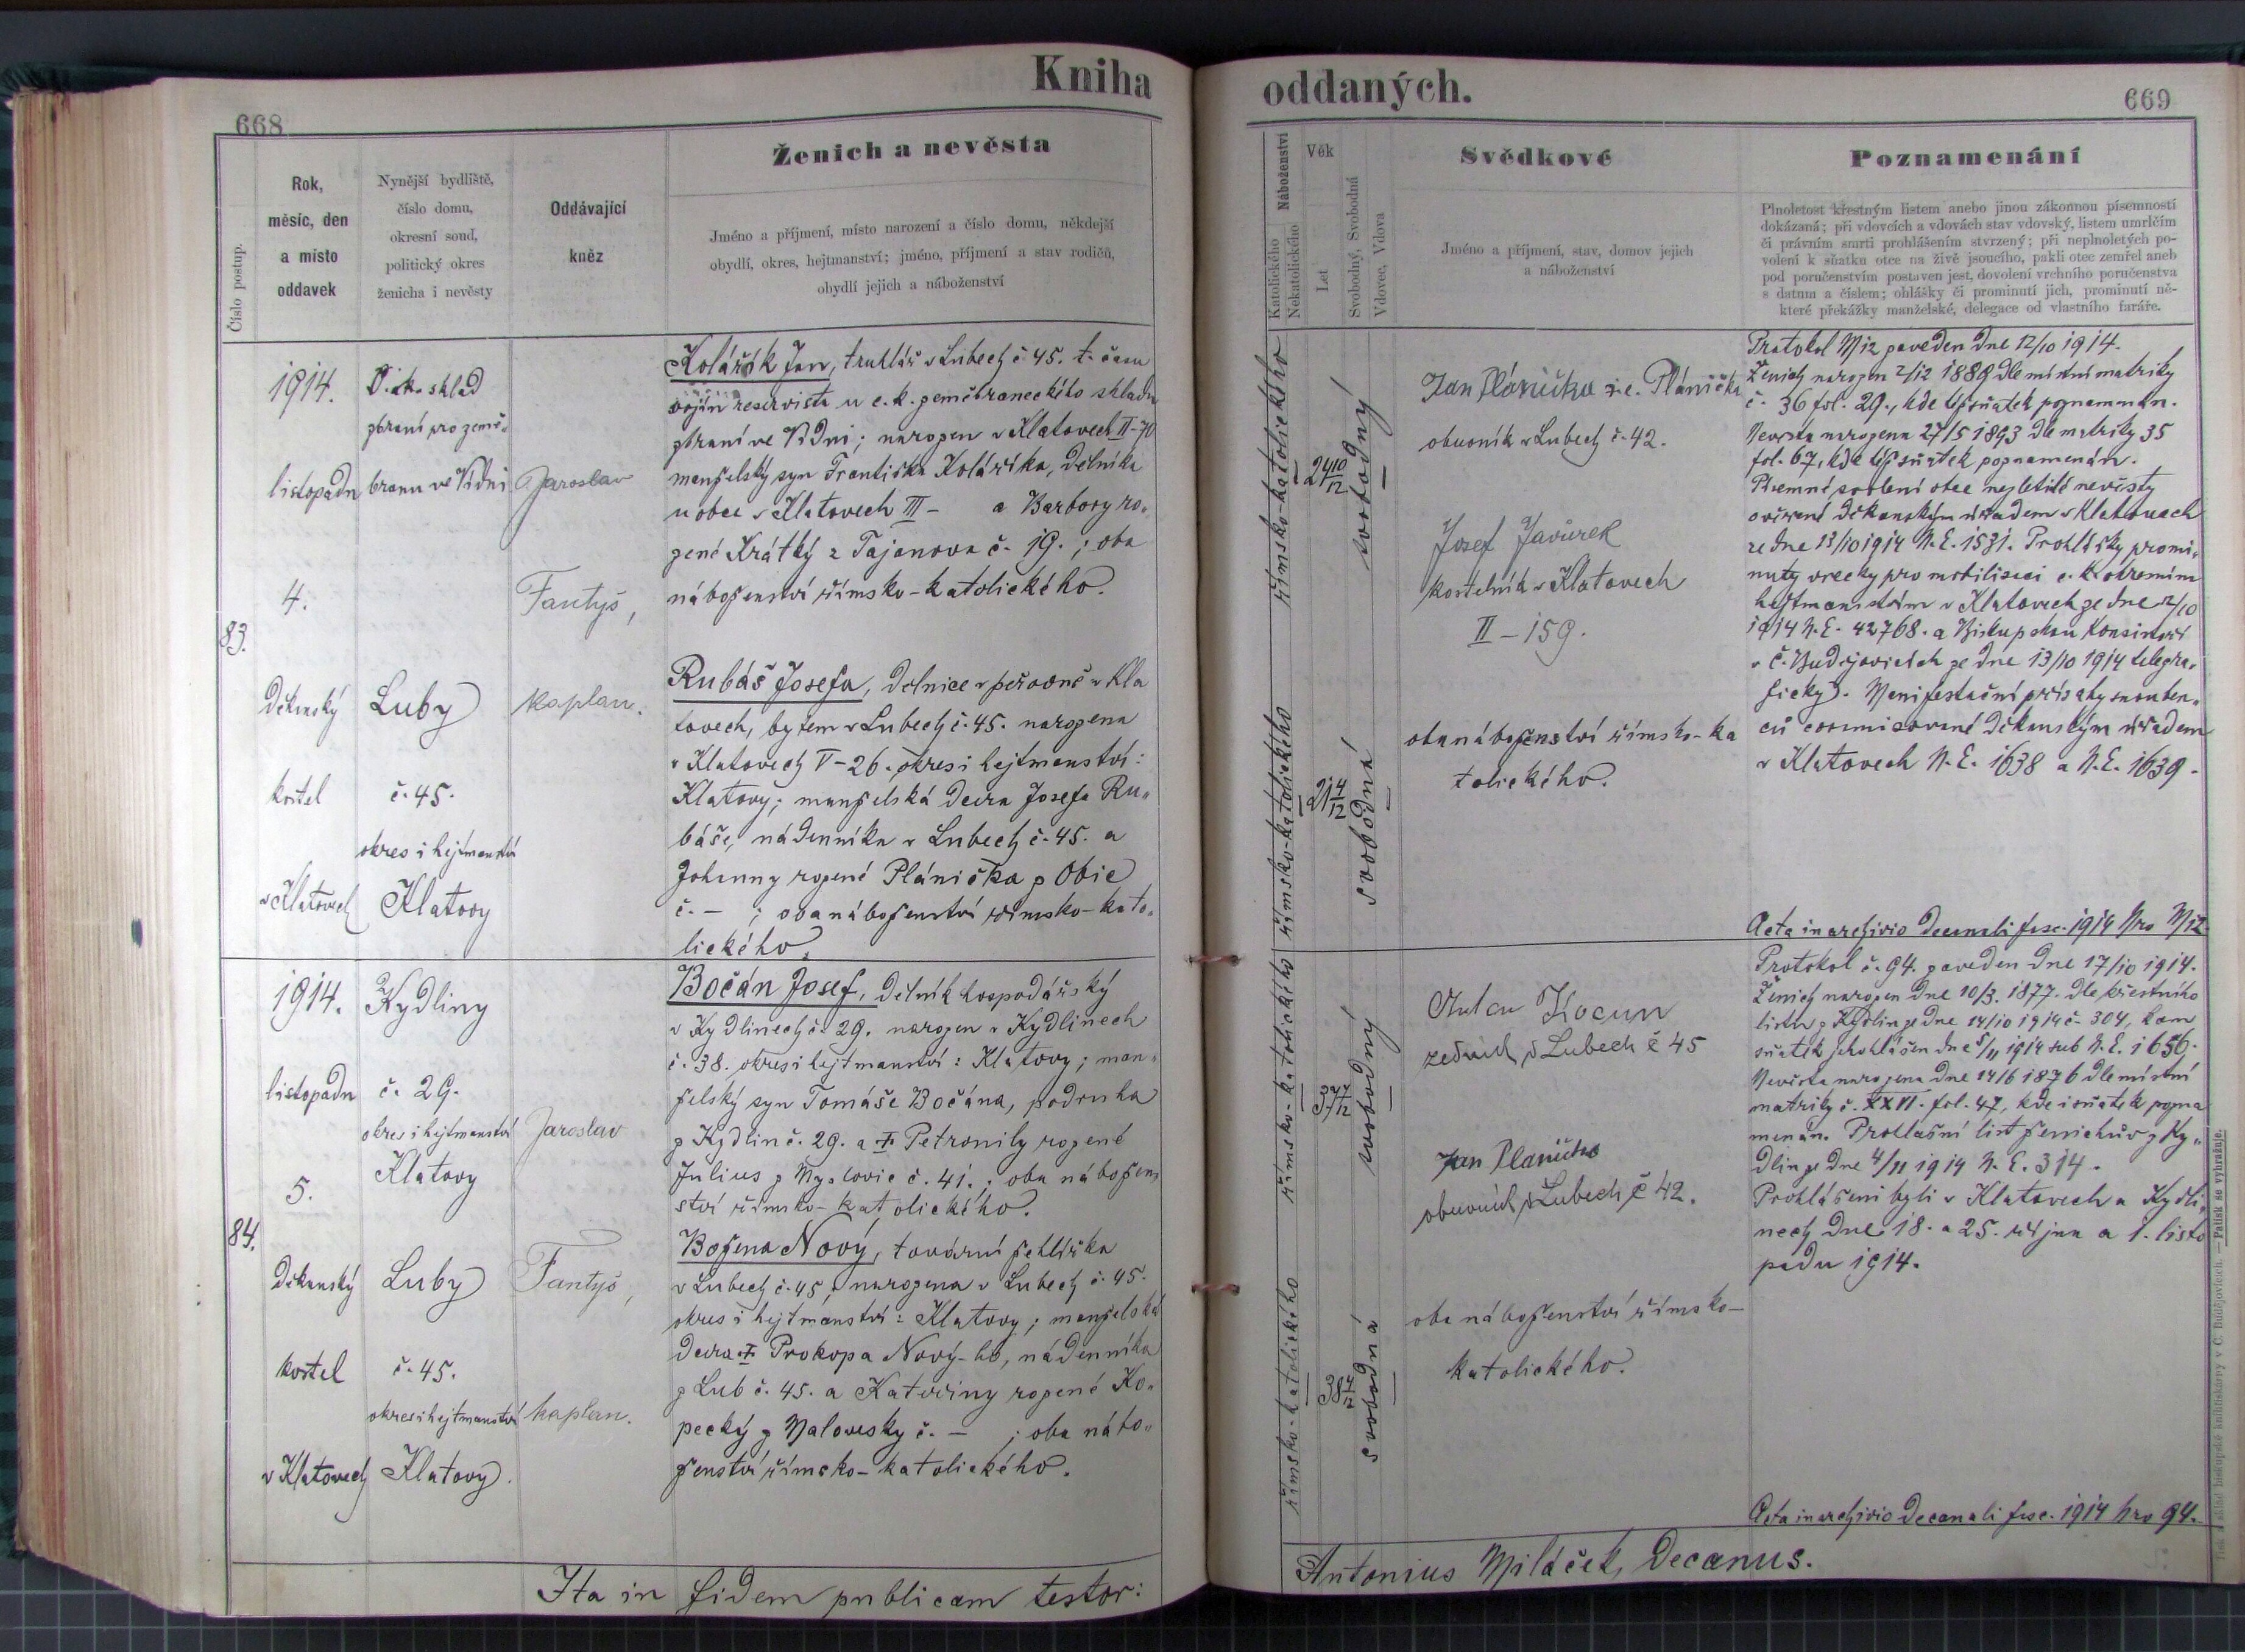 Kniha oddaných.
668
669
Číslo postup.
Rok,
měsíc, den
a místo
oddavek
Nynější bydliště,
číslo domu,
okresní soud,
politický okres
ženicha i nevěsty
Oddávající
kněz
Ženich a nevěsta
Jméno a příjmení, místo narození a číslo domu, někdejší
obydlí, okres, hejtmanství; jméno, příjmení a stav rodičů,
obydlí jejich a náboženství
Náboženství
Katolického
Nekatolického
Věk
Let
Svobodný, Svobodná
Vdovec, Vdova
Svědkové
Jméno a příjmení, stav, domov jejich
a náboženství
Poznamenání
Plnoletost křestným listem anebo jinou zákonnou písemností
dokázaná; při vdovcích a vdovách stav vdovský, listem umrlčím
či právním smrti prohlášením stvrzený; při neplnoletých po-
volení k sňatku otce na živě jsoucího, pakli otec zemřel aneb
pod poručenstvím postaven jest, dovolení vrchního poručenstva
s datum a číslem; ohlášky či prominutí jich, prominutí ně-
které překážky manželské, delegace od vlastního faráře.
83.
1914.
listopadu
4.
Děkanský
kostel
v Klatovech
sklad
zbraní pro země-
branu ve Vídni
Luby
č. 45.
okres i hejtmanství
Klatovy
Jaroslav
Fantyš,
kaplan.
Kolářík Jan, truhlář v Lubech č. 45. t. času
vojín reservista u c. k. zeměbraneckého skladu
zbraní ve Vídni; narozen v Klatovech II-70
manželský syn Františka Koláříka, dělníka
u obce v Klatovech III - a Barbory ro-
zené Krátký z Tajanova č. 19.; oba
náboženství římsko-katolického.
Rubáš Josefa, dělnice v peřovně v Kla
tovech, bytem v Lubech č. 45. narozena
v Klatovech V-26. okres i hejtmanství:
Klatovy; manželská dcera Josefa Ru-
báše, nádenníka v Lubech č. 45. a
Johanny rozené Plánička z Obie
č. - ; oba náboženství římsko-kato-
lického.
římsko-katolického
24 10/12
svobodný
římsko-katolického
21 4/12
svobodná
Jan Plánička r.e. Plánička
obuvník v Lubech č. 42.
Josef Javůrek
kostelník v Klatovech
II - 159.
oba náboženství římsko-ka
tolického.
Protokol M12 zaveden dne 12/10 1914.
Ženich narozen 2/12 1889 dle místní matriky
č. 36 fol. 29., kde též sňatek poznamenán.
Nevěsta narozena 27/5 1893 dle matriky 35
fol. 67, kde též sňatek poznamenán.
Písemné svolení otce nezletilé nevěsty
ověřené děkanským úřadem v Klatovech
ze dne 13/10 1914 N. E. 1531. Prohlášky promi-
nuty vsecky pro mobilisaci c. k. okresním
hejtmanstvím v Klatovech ze dne 12/10
1914 N. E. 42768. a Biskupskou Konsistoří
v Č. Budějovicích ze dne 13/10 1914 telegra-
ficky). Manifestační přísahy snouben-
ců děkanským úřadem
v Klatovech N. E. 1638 a N. E. 1639.
Acta in archivio decanali fasc. 1914 Nro M12
84.
1914.
listopadu
5.
Děkanský
kostel
v Klatovech
Kydliny
č. 29.
okres i hejtmanství
Klatovy
Luby
č. 45.
okres i hejtmanství
Klatovy.
Jaroslav
Fantyš,
kaplan.
Bočán Josef, dělník hospodářský
v Kydlinech č. 29. narozen v Kydlinech
č. 38. okres i hejtmanství: Klatovy; man-
želský syn Tomáše Bočána, podruha
z Kydlin č. 29. a † Petronily rozené
Julius z Myslovic č. 41.; oba nábožen-
ství římsko-katolického.
Božena Nový, tovární žehlířka
v Lubech č. 45, narozena v Lubech č. 45.
okres i hejtmanství: Klatovy; manželská
dcera † Prokopa Nový-ho, nádenníka
z Lub č. 45. a Kateřiny rozené Ko-
pecký z Malovesky č. - ; oba nábo-
ženství římsko-katolického.
římsko-katolického
37 7/12
svobodný
římsko-katolického
38 4/12
svobodná
Anton Kocum
zedník v Lubech č 45
Jan Planička
obuvník v Lubech č 42.
oba náboženství římsko-
katolického.
Protokol č. 94. zaveden dne 17/10 1914.
Ženich narozen dne 10/3. 1877. dle křestního
listu z Kydlin ze dne 14/10 1914 č. 304, kam
sňatek ohlášen dne 5/11 1914 sub N. E. 1656.
Nevěsta narozena dne 14/6 1876 dle místní
matriky č. XXVI. fol. 47, kde i sňatek pozna
menán. Prohlašní list ženichův z Ky-
dlin ze dne 4/11 1914 N. E. 314.
Prohlášeni byli v Klatovech a Kydli-
nech dne 18. a 25. října a 1. listo
padu 1914.
Acta in archivio decanali fasc. 1914 Nro 94.
Ita in fidem publicam testor:
Antonius Miláček, Decanus.
Tisk a sklad biskupské knihtiskárny v Č. Budějovicích. — Patisk se vyhražuje.